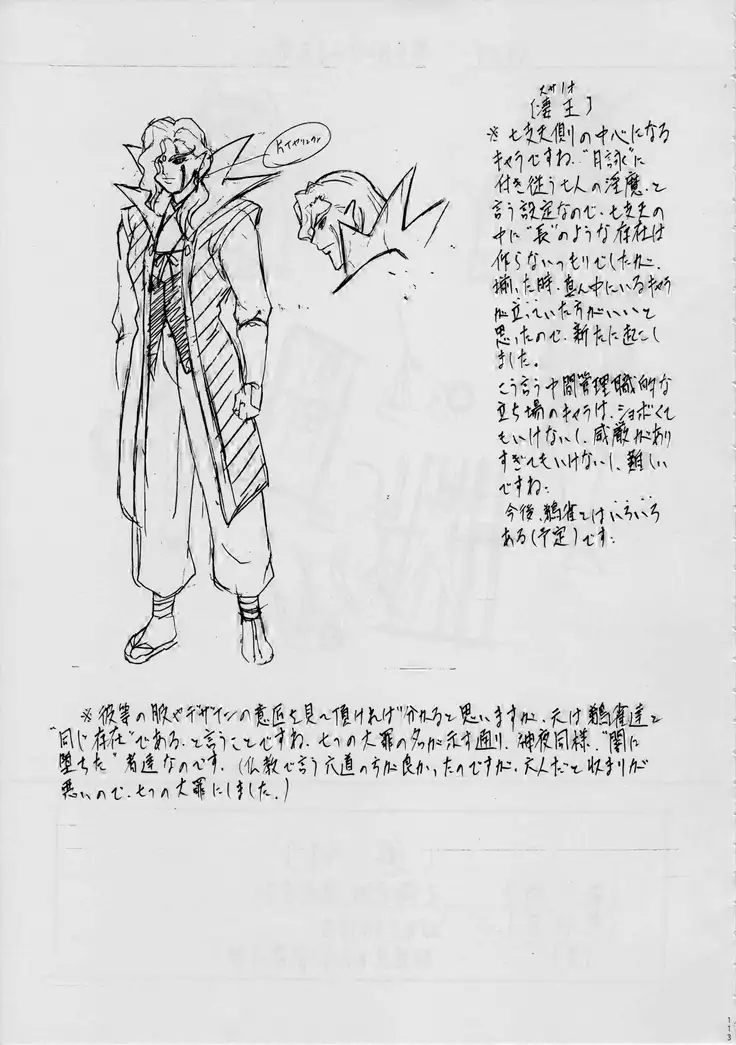 [凄王]
※七支夫側の中心になる
キャラですね。"月詠"に
付き従う七人の淫魔、と
言う設定なので、七支夫の
中に"長"のような存在は
作らないつもりでしたが、
揃った時、真ん中にいるキャラ
が立っていた方がいいと
思ったので、新たに起こし
ました。
こう言う中間管理職的な
立ち場のキャラは、ショボくて
もいけないし、威厳があり
すぎてもいけないし、難しい
ですね。
今後、鵺雀とはいろいろ
ある(予定)です。
※彼等の服やデザインの意匠を見て頂ければ分かると思いますが、元は鵺雀達と
"同じ存在"である、と言うことですね。七つの大罪の名が示す通り、神夜同様、"闇に
堕ちた"者達なのです。(仏教で言う六道の方が良かったのですが、六人だと収まりが
悪いので、七つの大罪にしました。)
113